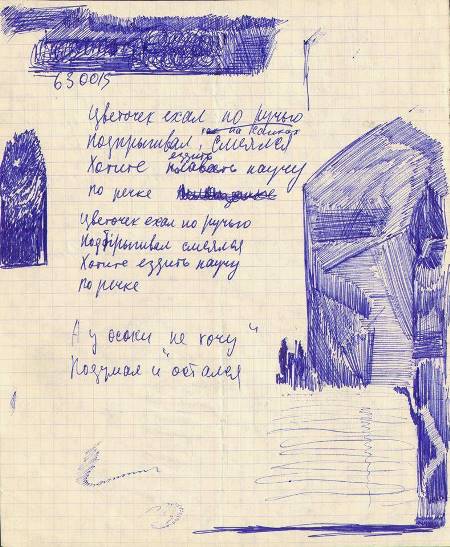 630015
Цветочек ехал по ручью
как на коньках
Подпрыгивал, смеялся
ездить
Хотите плавать научу
По речке
Цветочек ехал по ручью
Подпрыгивал смеялся
Хотите ездить научу
По речке
А у осоки "не хочу"
Подумал и остался